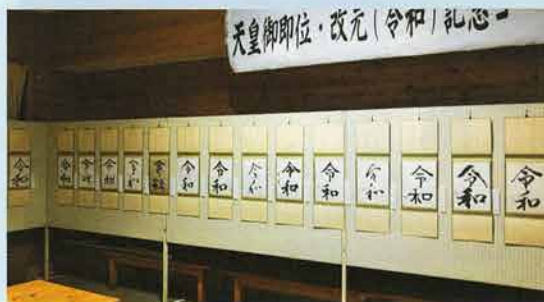 天皇御即位・改元(令和)記念
令和
令和
令和
令和
令和
令和
令和
令和
令和
令和
令和
令和
令和
令和